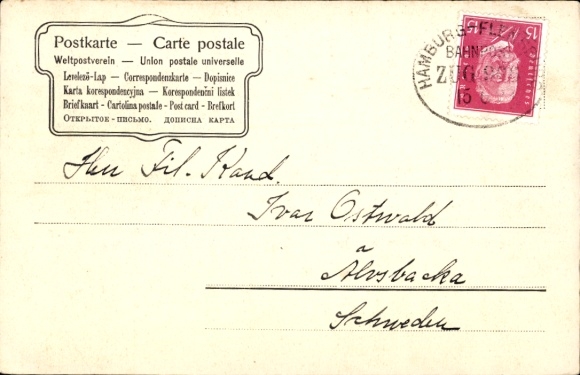 Postkarte — Carte postale
Weltpostverein — Union postale universelle
Levelező-Lap — Correspondenzkarte — Dopisnice
Karta korespondencyjna — Korespondenční lístek
Briefkaart - Cartolina postale - Post card - Brefkort
Открытое - письмо. дописна карта
HAMBURG-FLE
BAHN
ZUG
15
15
Herr Fil. Kand.
Ivar Ostwald
Älvsbacka
Schweden